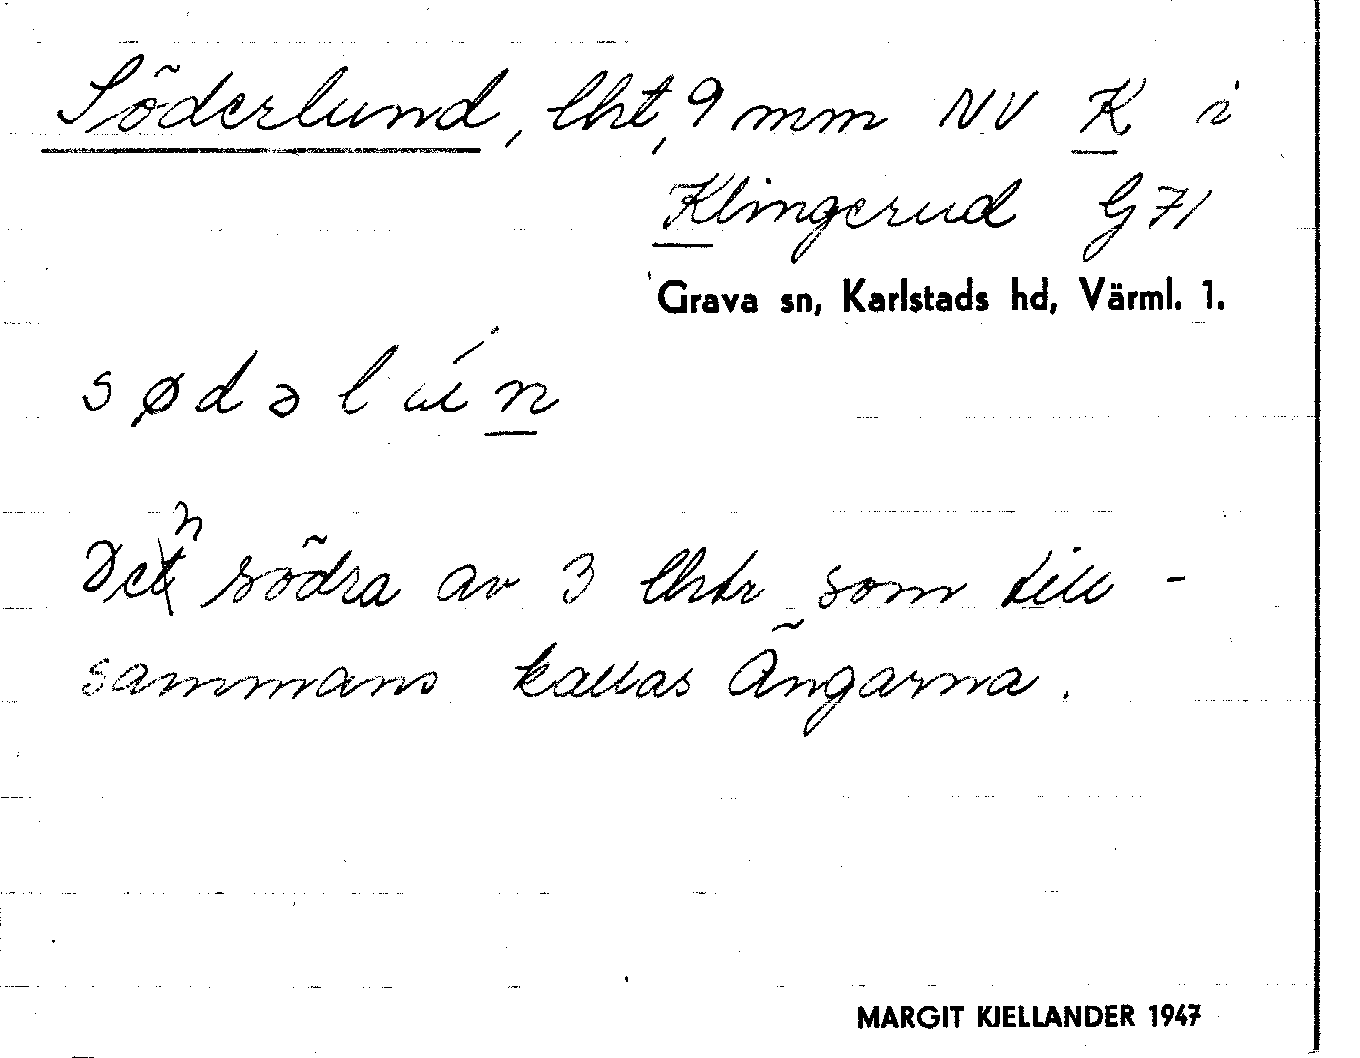 Söderlund, lht, 9 mm NV K i
Klingerud G71
Grava sn, Karlstads hd, Värml. 1.
sødəlún
Den södra av 3 lhtr som till-
sammans kallas Ängarna.
MARGIT KJELLANDER 1947